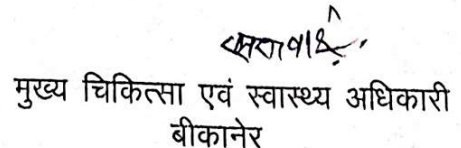 मुख्य चिकित्सा एवं स्वास्थ्य अधिकारी
बीकानेर